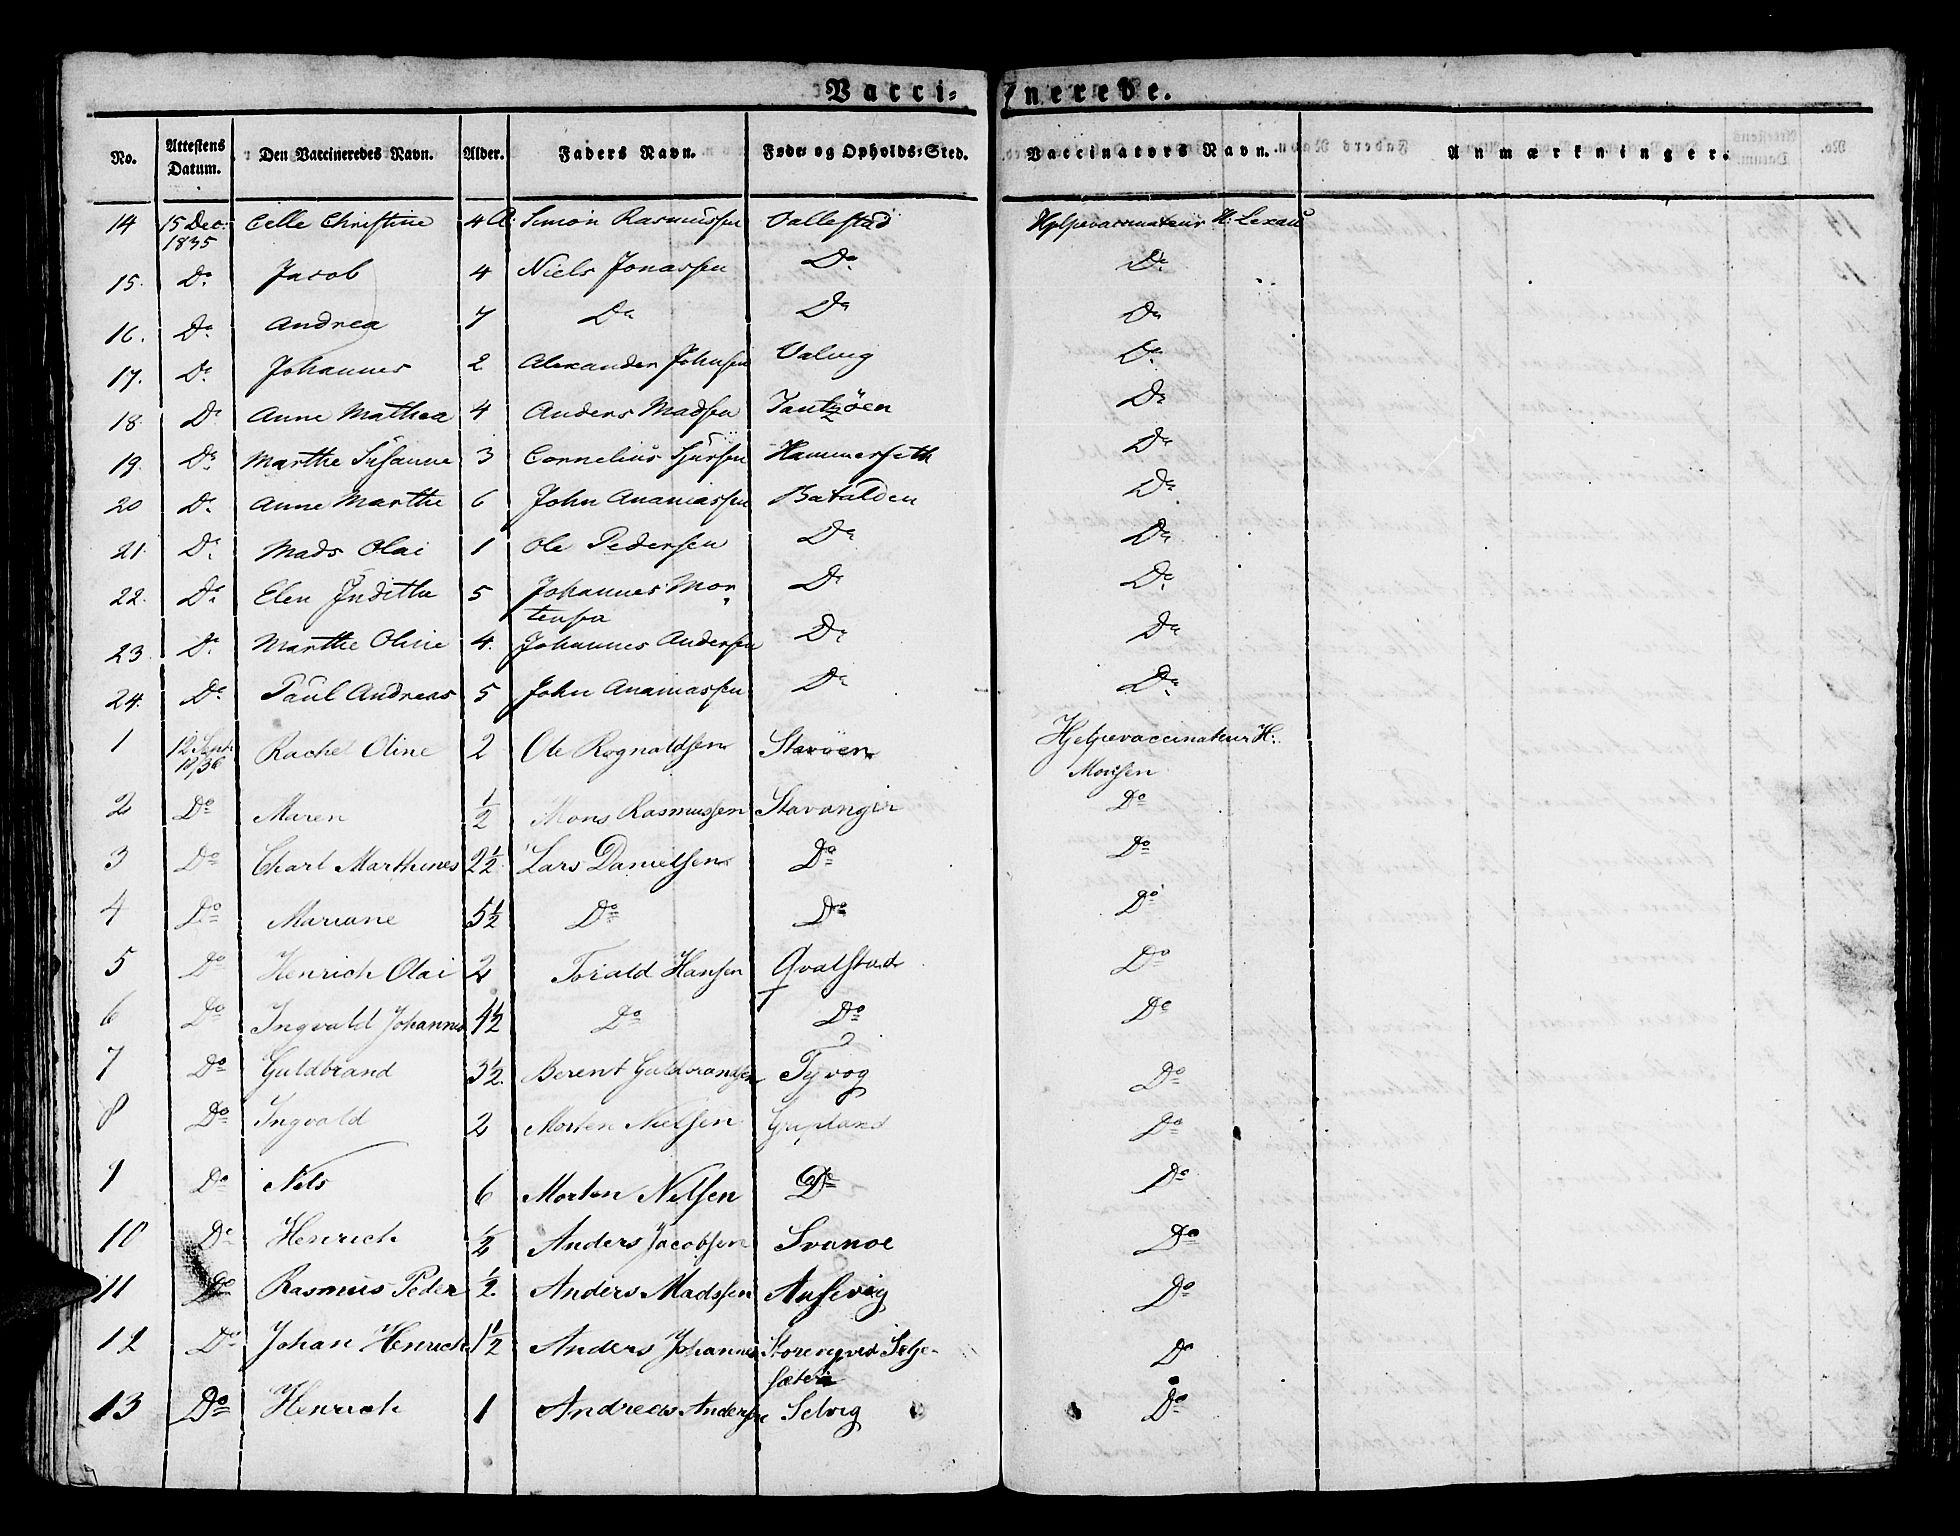 Vacci- nerede.
No. Attestens Datum. Den Vaccineredes Navn. Alder. Faders Navn. Føde- og Opholds-Sted. Vaccinators Navn. Anmærkninger.
14 15 Dec: 1835 Celle Christine 4 A Simon Rasmussen Vallestad Hjelpevaccinateur H: Lexau
15. Do Jacob 4 Niels Jonassen Do Do
16. Do Andrea 7 Do Do Do
17. Do Johannes 2 Alexander Johnsen Valvig Do
18. Do Anne Mathea 4 Anders Madsen Tantzöen Do
19. Do Marthe Susanne 3 Cornelius Sjursen Hammerseth Do
20 Do Anne Marthe 6 John Ananiassen Batalden Do
21. Do Mads Olai 1 Ole Pedersen Do Do
22. Do Elen Juditha 5 Johannes Mortensen Do Do
23 Do Marthe Oline 4. Johannes Andersen Do Do
24. Do Paul Andreas 5 John Ananiassen Do Do
1 12 Sept 1836 Rachel Oline 2 Ole Rognaldsen Stavöen Hjelpevaccinateur H: Monsen
2 Do Maren 1/2 Mons Rasmussen Stavanger Do
3 Do Charl Marthines 2 1/2 Lars Danielsen Do Do
4 Do Mariane 5 1/2 Do Do Do
5 Do Henrich Olai 2 Torald Hansen Qvalstad Do
6 Do Ingvald Johannes 4 1/2 Do Do Do
7 Do Guldbrand 3 1/2. Berent Guldbrandsen Tyvog Do
8 Do Ingvald 2 Morten Nielsen Do
9 Do Nils 6 Morten Nilsen Do Do
10 Do Henrich 1/2 Anders Jacobsen Svanøe Do
11 Do Rasmus Peder 1/2. Anders Madssen Ausevig Do
12 Do Johan Henrich 1 1/2 Anders Johannes Do
13 Do Henrich 1 Andreas Andersen Selvig Do